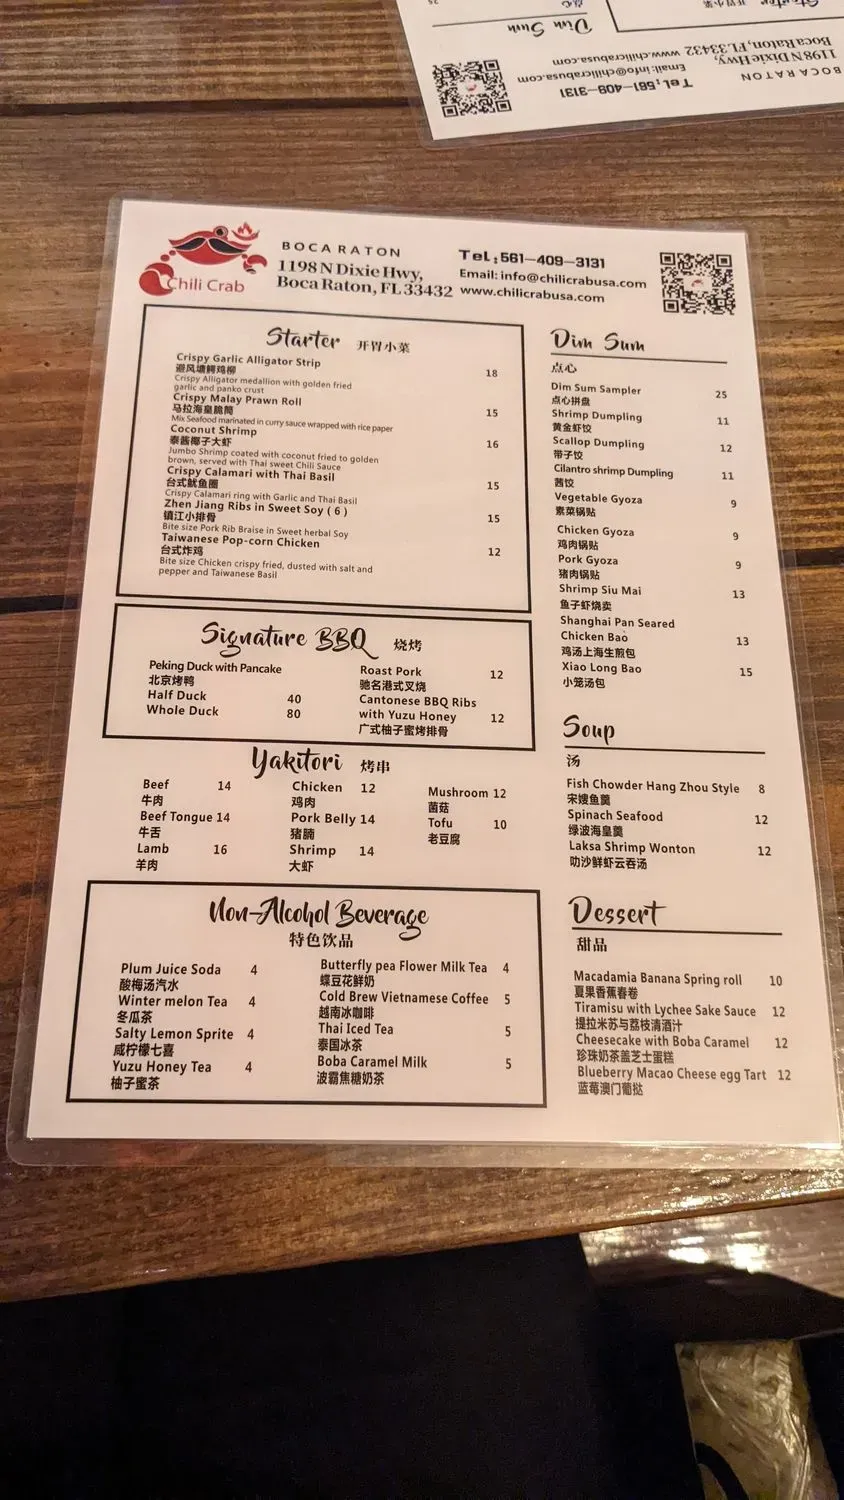 BOCA RATON
1198 N Dixie Hwy,
Boca Raton, FL 33432
Chili Crab
Tel;561-409-3131
Email: info@chilicrabusa.com
www.chilicrabusa.com
Starter 开胃小菜
Crispy Garlic Alligator Strip
避风塘鳄鸡柳 18
Crispy Alligator medallion with golden fried
garlic and panko crust
Crispy Malay Prawn Roll
马拉海皇脆筒 15
Mix Seafood marinated in curry sauce wrapped with rice paper
Coconut Shrimp
泰酱椰子大虾 16
Jumbo Shrimp coated with coconut fried to golden
brown, served with Thai sweet Chili Sauce
Crispy Calamari with Thai Basil
台式鱿鱼圈 15
Crispy Calamari ring with Garlic and Thai Basil
Zhen Jiang Ribs in Sweet Soy ( 6 )
镇江小排骨 15
Bite size Pork Rib Braise in Sweet herbal Soy
Taiwanese Pop-corn Chicken
台式炸鸡 12
Bite size Chicken crispy fried, dusted with salt and
pepper and Taiwanese Basil
Signature BBQ 烧烤
Peking Duck with Pancake
北京烤鸭
Half Duck 40
Whole Duck 80
Roast Pork 12
驰名港式叉烧
Cantonese BBQ Ribs
with Yuzu Honey 12
广式柚子蜜烤排骨
Yakitori 烤串
Beef 14
牛肉
Beef Tongue 14
牛舌
Lamb 16
羊肉
Chicken 12
鸡肉
Pork Belly 14
猪腩
Shrimp 14
大虾
Mushroom 12
菌菇
Tofu 10
老豆腐
Non-Alcohol Beverage
特色饮品
Plum Juice Soda 4
酸梅汤汽水
Winter melon Tea 4
冬瓜茶
Salty Lemon Sprite 4
咸柠檬七喜
Yuzu Honey Tea 4
柚子蜜茶
Butterfly pea Flower Milk Tea 4
蝶豆花鲜奶
Cold Brew Vietnamese Coffee 5
越南冰咖啡
Thai Iced Tea 5
泰国冰茶
Boba Caramel Milk 5
波霸焦糖奶茶
Dim Sum
点心
Dim Sum Sampler 25
点心拼盘
Shrimp Dumpling 11
黄金虾饺
Scallop Dumpling 12
带子饺
Cilantro shrimp Dumpling 11
茜饺
Vegetable Gyoza 9
素菜锅贴
Chicken Gyoza 9
鸡肉锅贴
Pork Gyoza 9
猪肉锅贴
Shrimp Siu Mai 13
鱼子虾烧卖
Shanghai Pan Seared
Chicken Bao 13
鸡汤上海生煎包
Xiao Long Bao 15
小笼汤包
Soup
汤
Fish Chowder Hang Zhou Style 8
宋嫂鱼羹
Spinach Seafood 12
绿波海皇羹
Laksa Shrimp Wonton 12
叻沙鲜虾云吞汤
Dessert
甜品
Macadamia Banana Spring roll 10
夏果香蕉春卷
Tiramisu with Lychee Sake Sauce 12
提拉米苏与荔枝清酒汁
Cheesecake with Boba Caramel 12
珍珠奶茶盖芝士蛋糕
Blueberry Macao Cheese egg Tart 12
蓝莓澳门葡挞
BOCA RATON
1198 N Dixie Hwy,
Boca Raton, FL 33432
Tel;561-409-3131
Email: info@chilicrabusa.com
www.chilicrabusa.com
Starter 开胃小菜
Dim Sum
点心
25